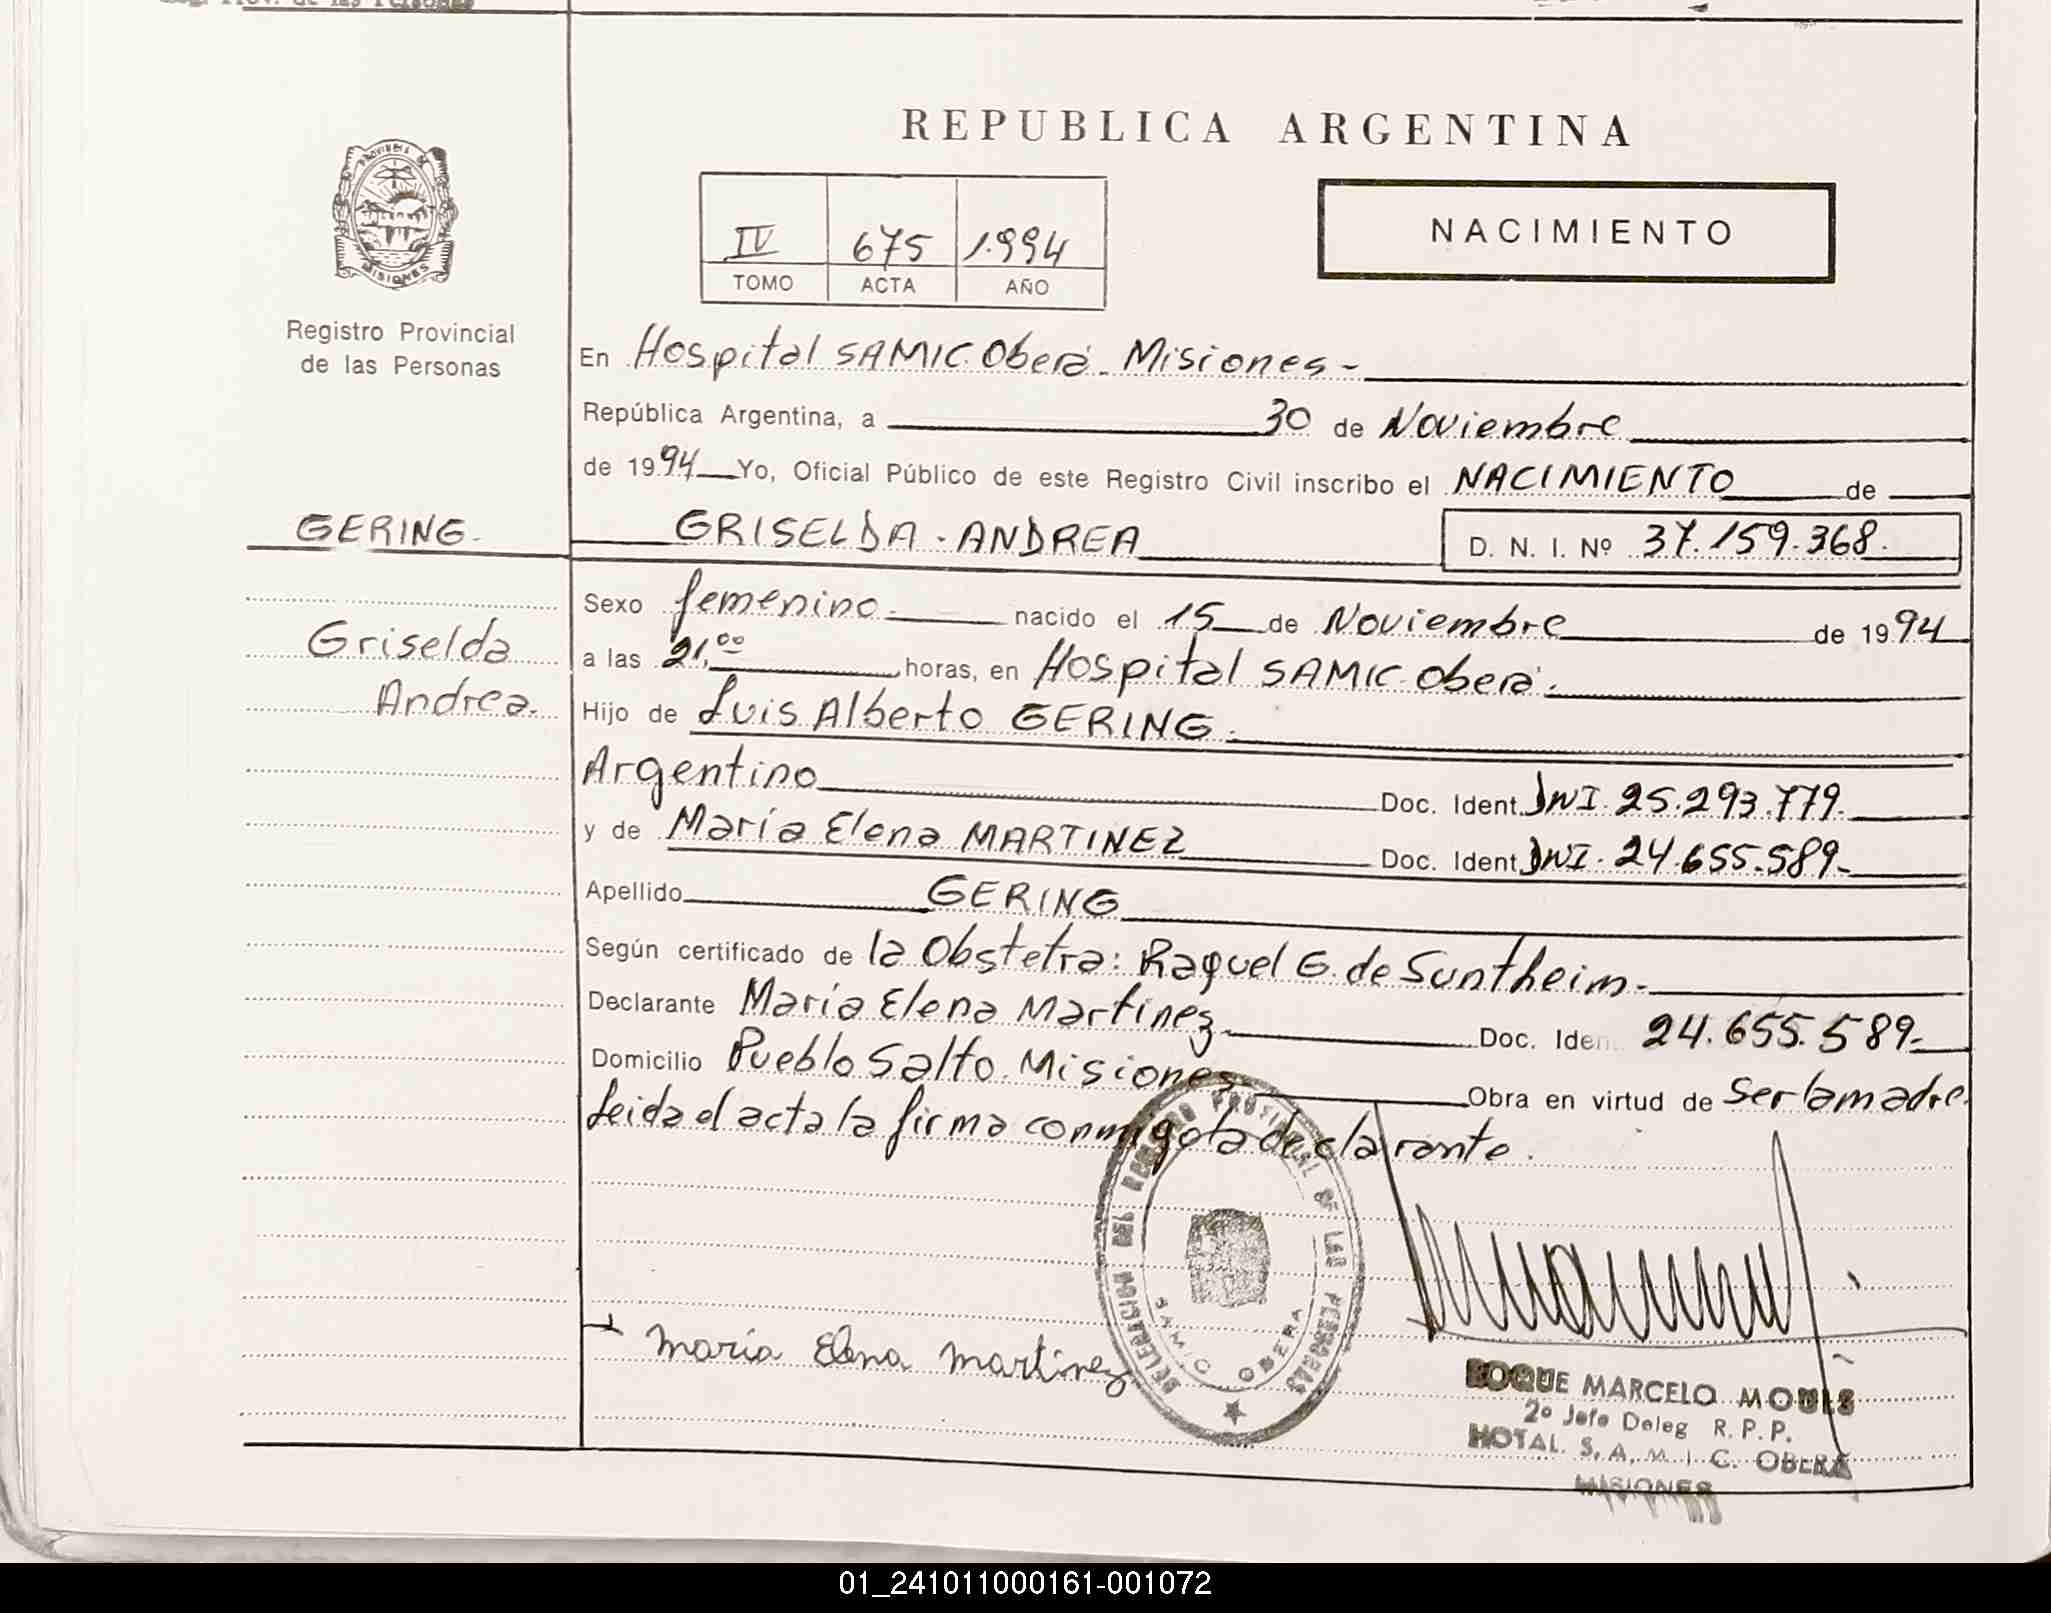 REPUBLICA ARGENTINA
PROVINCIA DE
MISIONES
Registro Provincial
de las Personas
IV 675 1.994
TOMO ACTA AÑO
NACIMIENTO
En Hospital SAMIC Oberá - Misiones -
República Argentina, a 30 de Noviembre
de 1994 Yo, Oficial Público de este Registro Civil inscribo el NACIMIENTO de
GERING. GRISELDA - ANDREA D. N. I. Nº 37.159.368.
Griselda
Andrea.
Sexo femenino nacido el 15 de Noviembre de 1994
a las 21,00 horas, en Hospital SAMIC Oberá.
Hijo de Luis Alberto GERING.
Argentino Doc. Ident. DNI. 25.293.779.
y de María Elena MARTINEZ Doc. Ident. DNI. 24.655.589-
Apellido GERING
Según certificado de la Obstetra: Raquel G. de Suntheim.
Declarante María Elena Martinez Doc. Iden 24.655.589-
Domicilio Pueblo Salto. Misiones Obra en virtud de ser la madre.
Leida el acta la firma conmigo la declarante.
DELEGACION DEL REGISTRO PROVINCIAL DE LAS PERSONAS
SAMIC OBERA
maría Elena martinez
ROQUE MARCELO
2º Jefe Deleg R. P. P.
HOTAL. S. A. M. I. C. OBERÁ
MISIONES
01_241011000161-001072